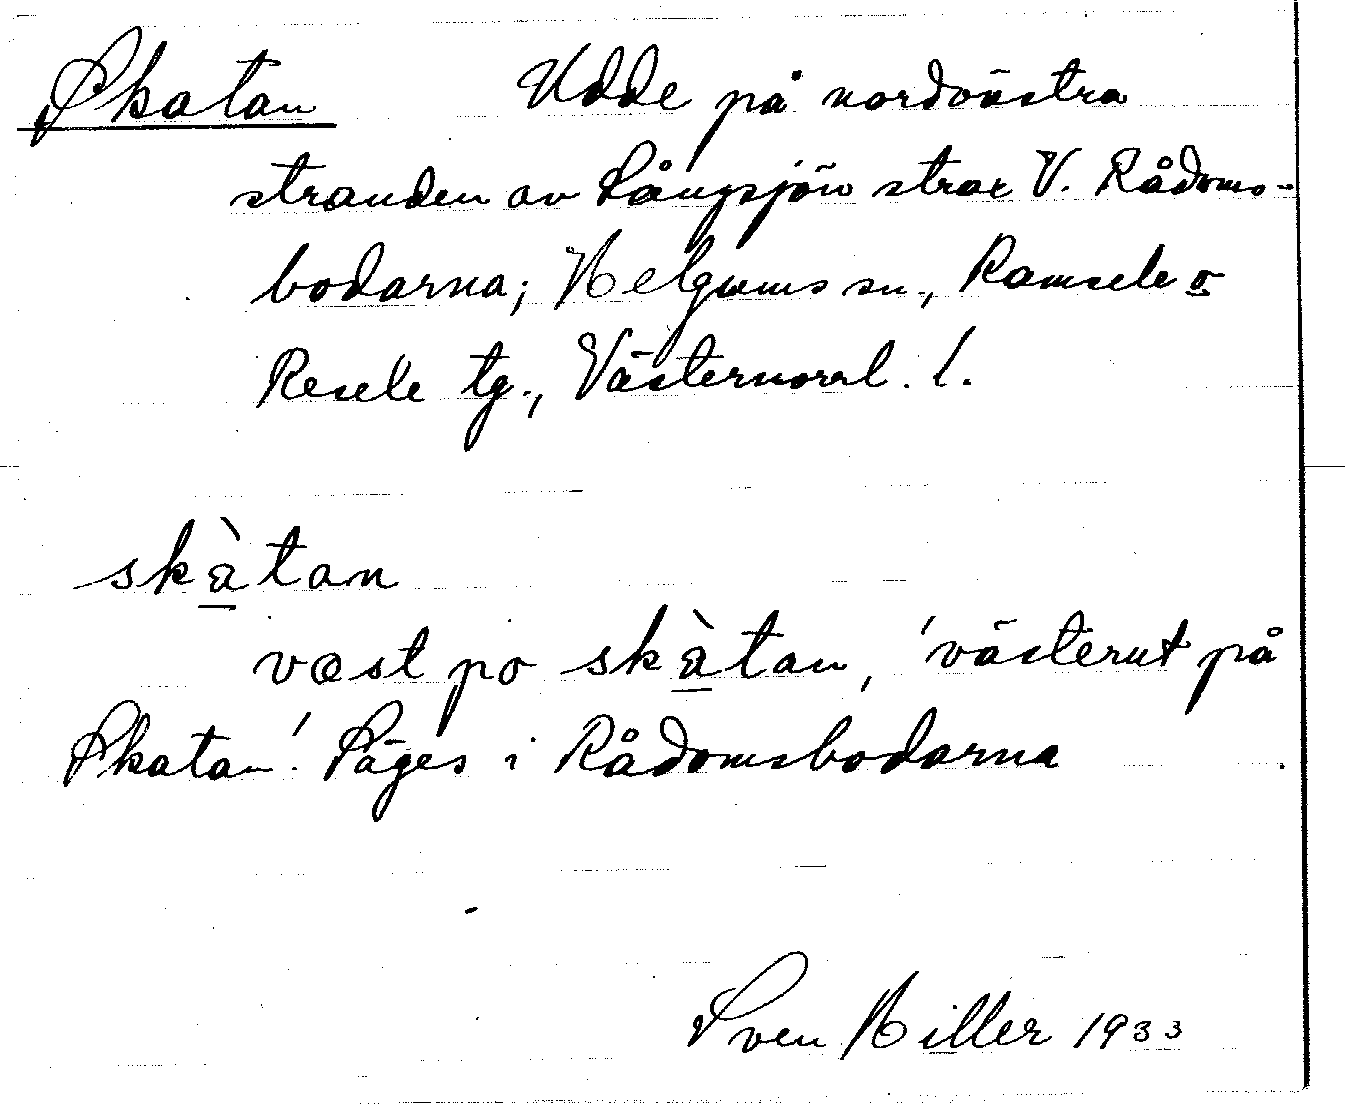 Skatan Udde på nordvästra
stranden av Långsjön strax V. Rådoms-
bodarna; Helgums sn., Ramsele o
Resele tg., Västernorrl. l.
skàtan
væst po skàtan, 'västerut på
Skatan'. Säges i Rådomsbodarna
Sven Hiller 1933